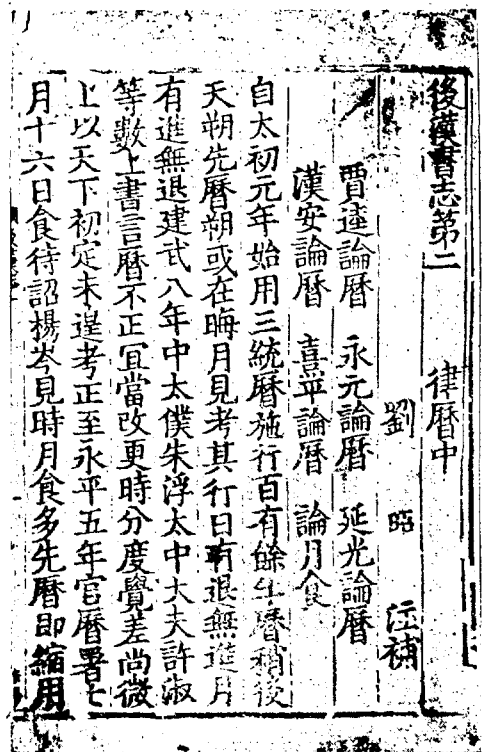 後漢書志第二　律曆中
劉昭　注補
賈逵論曆　永元論曆　延光論曆
漢安論曆　熹平論曆　論月食
自太初元年始用三統曆施行百有餘年曆稍後
天朔先曆朔或在晦月見考其行日有退無進月
有進無退建武八年中太僕朱浮太中大夫許淑
等數上書言曆不正宜當改更時分度覺差尚微
上以天下初定未遑考正至永平五年官曆署七
月十六日食待詔楊岑見時月食多先曆即縮用